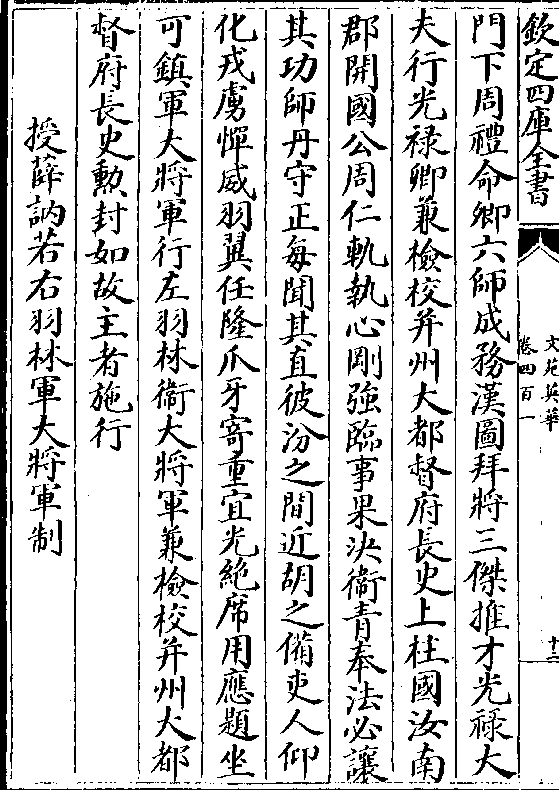 欽定四庫全書
文苑英華
卷四百一
十二
門下周禮命卿六師成務漢圖拜將三傑推才光祿大
夫行光祿卿兼檢校并州大都督府長史上柱國汝南
郡開國公周仁軌執心剛強臨事果決衞青奉法必讓
其功師丹守正每聞其直彼汾之間近胡之備吏人仰
化戎虜憚威羽翼任隆爪牙寄重宜光絶席用應題坐
可鎮軍大將軍行左羽林衞大將軍兼檢校并州大都
督府長史勲封如故主者施行
授薛訥若右羽林軍大將軍制